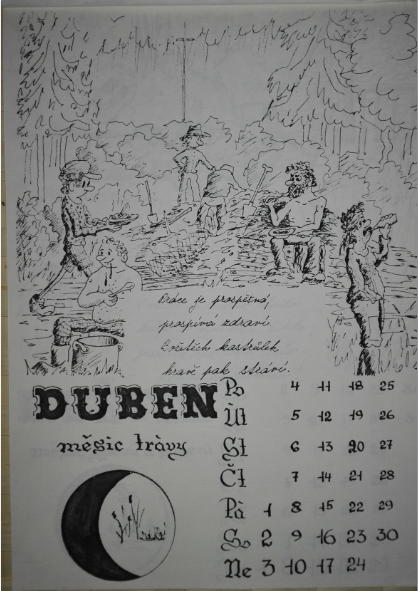 Práce je prospěšná,
prospívá zdraví.
kastrůlek
hravě pak stráví.
DUBEN
měsíc trávy
Po 4 11 18 25
Út 5 12 19 26
St 6 13 20 27
Čt 7 14 21 28
Pá 1 8 15 22 29
So 2 9 16 23 30
Ne 3 10 17 24